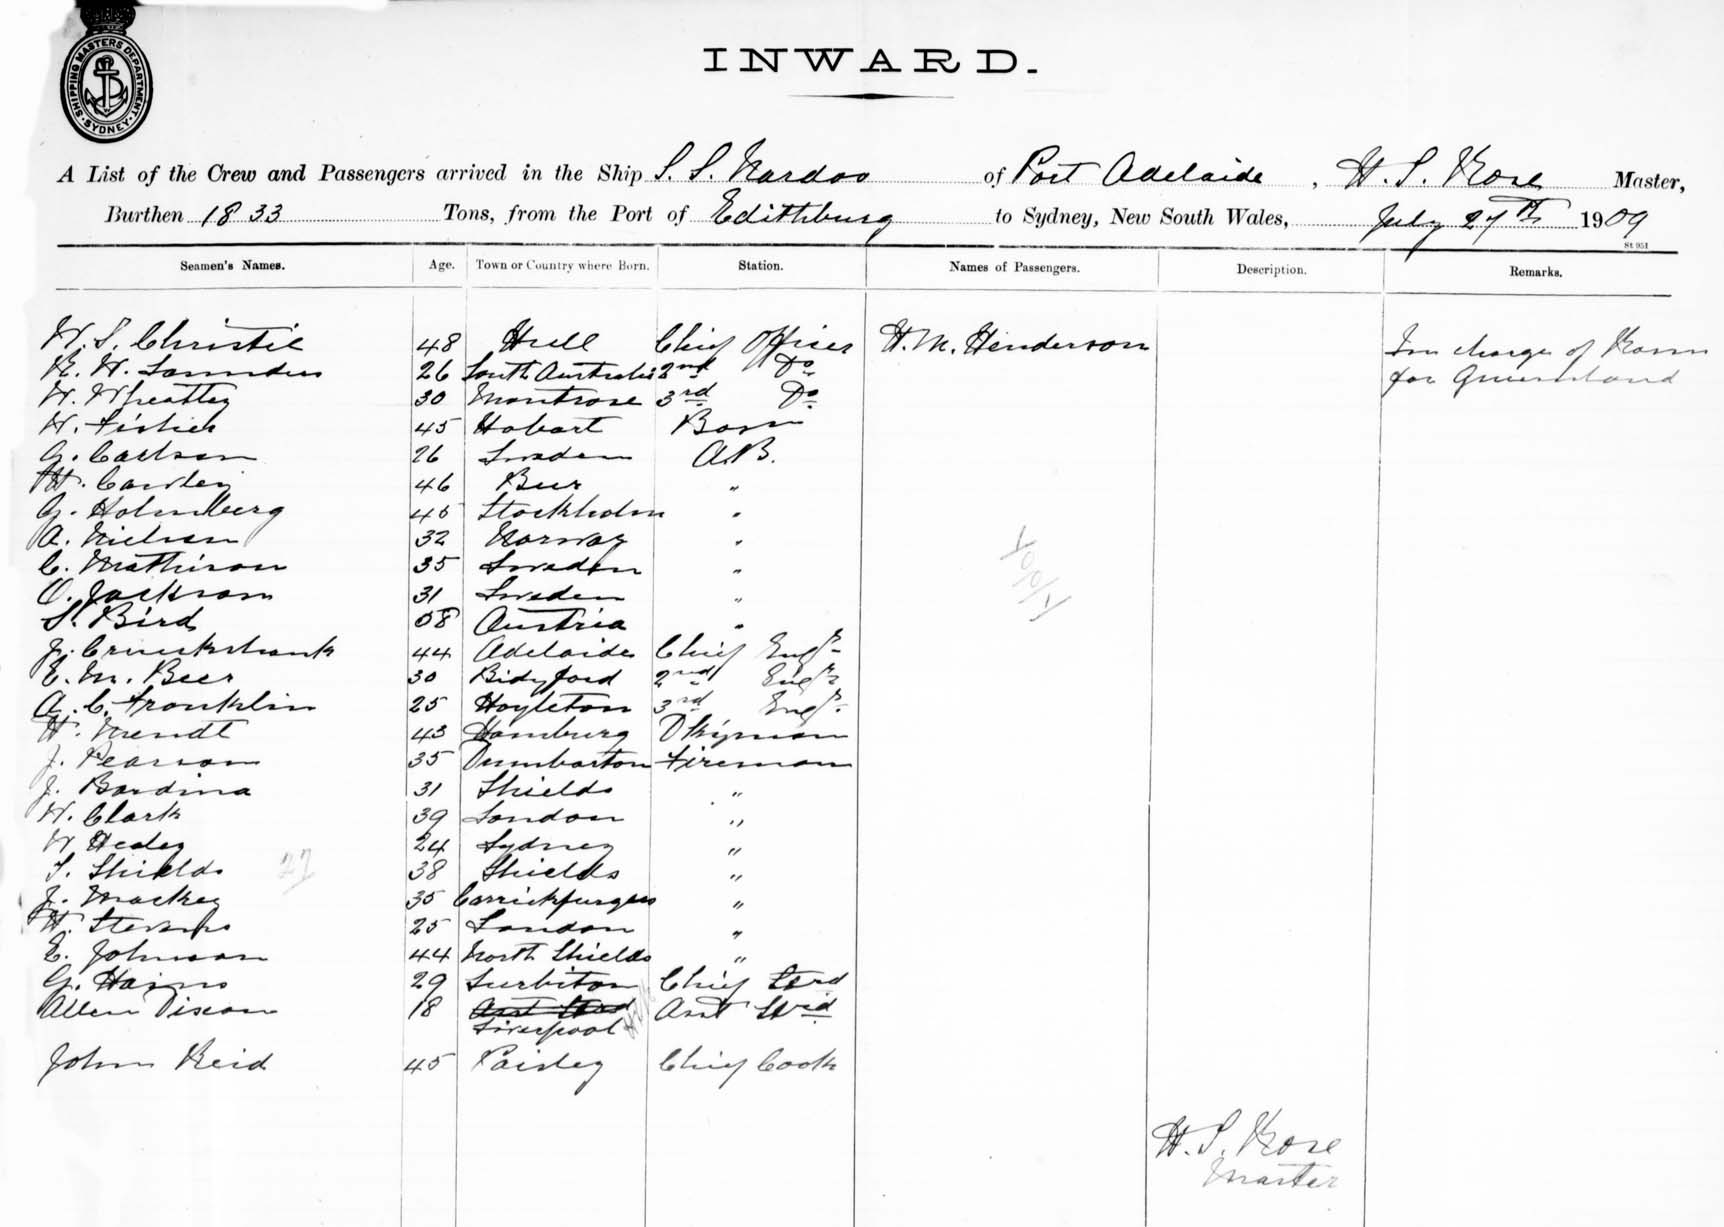 SHIPPING MASTERS DEPARTMENT
SYDNEY
INWARD.
A List of the Crew and Passengers arrived in the Ship S. S. Nardoo of Port Adelaide, H. S. Rose Master,
Burthen 1833 Tons, from the Port of Edithburg to Sydney, New South Wales, July 27th 1909
St 951
Seamen's Names. Age. Town or Country where Born. Station. Names of Passengers. Description. Remarks.
W. S. Christie 48 Hull Chief Officer H. M. Henderson In charge of Rams
E. W. Saunders 26 South Australia 2nd Do for Queensland
W. Wheatley 30 Montrose 3rd Do
W. 45 Hobart Bosn
G. Carlson 26 Sweden A.B.
H. Cawley 46 Beer "
G. Holmberg 45 Stockholm "
A. Nielsen 32 Norway "
C. Mathison 35 Sweden "
O. Jackson 31 Sweden "
S. Bird 58 Austria "
J. Cruickshank 44 Adelaide Chief Engr
E. M. Beer 30 Bidyford 2nd Engr
A. C. Franklin 25 Hoyleton 3rd Engr
H. Mendt 43 Hamburg Dkyman
J. Pearson 35 Dumbarton Fireman
J. Bardina 31 Shields "
W. Clark 39 London "
W Healey 24 Sydney "
T. Shields 38 Shields "
27
J. Mackey 35 Carrickfurgus "
H. Stevens 25 London "
E. Johnson 44 North Shields "
G. Hains 29 Surbiton Chief Strd
Allen Dixon 18 Asst Strd Asst Strd
Liverpool
John Reid 45 Paisley Chief Cook
H. S. Rose
Master